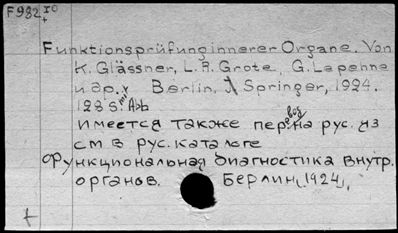 F982 IO
+
Funktionsprüfung innerer Organe. Von
K. Glässner, L. R. Grote, G. Lepehne
и др. Berlin, J Springer, 1924.
128 S. m Abb
имеется также перевод на рус. яз
см в рус. каталоге
Функциональная диагностика внутр.
органов. Берлин, 1924,